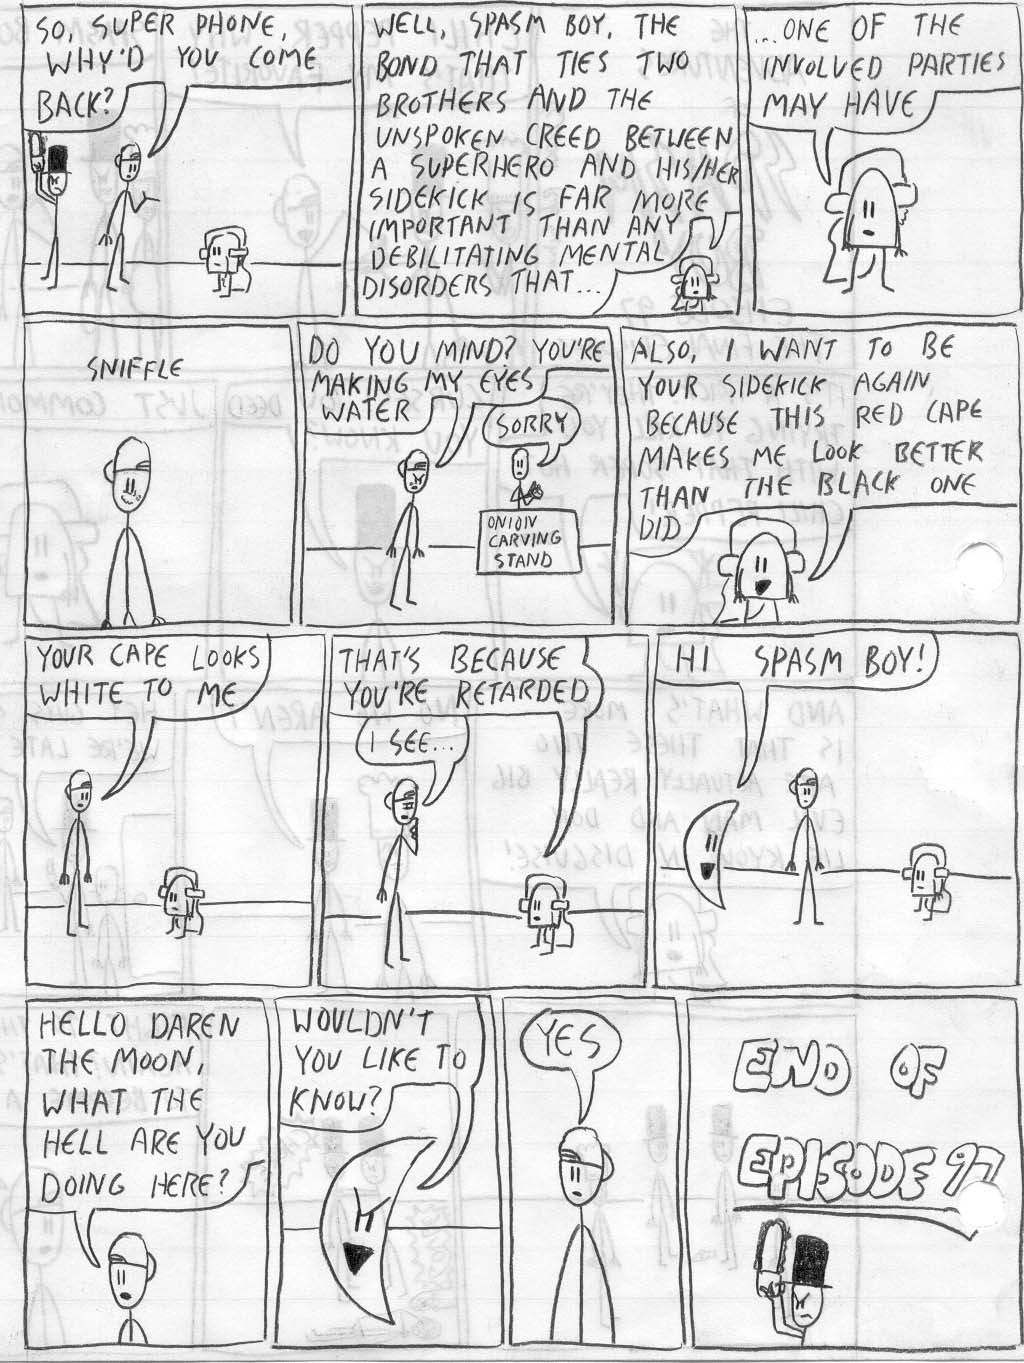 SO, SUPER PHONE,
WHY'D YOU COME
BACK?
WELL, SPASM BOY, THE
BOND THAT TIES TWO
BROTHERS AND THE
UNSPOKEN CREED BETWEEN
A SUPERHERO AND HIS/HER
SIDEKICK IS FAR MORE
IMPORTANT THAN ANY
DEBILITATING MENTAL
DISORDERS THAT...
...ONE OF THE
INVOLVED PARTIES
MAY HAVE
SNIFFLE
DO YOU MIND? YOU'RE
MAKING MY EYES
WATER
SORRY
ONION
CARVING
STAND
ALSO, I WANT TO BE
YOUR SIDEKICK AGAIN
BECAUSE THIS RED CAPE
MAKES ME LOOK BETTER
THAN THE BLACK ONE
DID
YOUR CAPE LOOKS
WHITE TO ME
THAT'S BECAUSE
YOU'RE RETARDED
I SEE...
HI SPASM BOY!
HELLO DAREN
THE MOON,
WHAT THE
HELL ARE YOU
DOING HERE?
WOULDN'T
YOU LIKE TO
KNOW?
YES
END OF
EPISODE 97